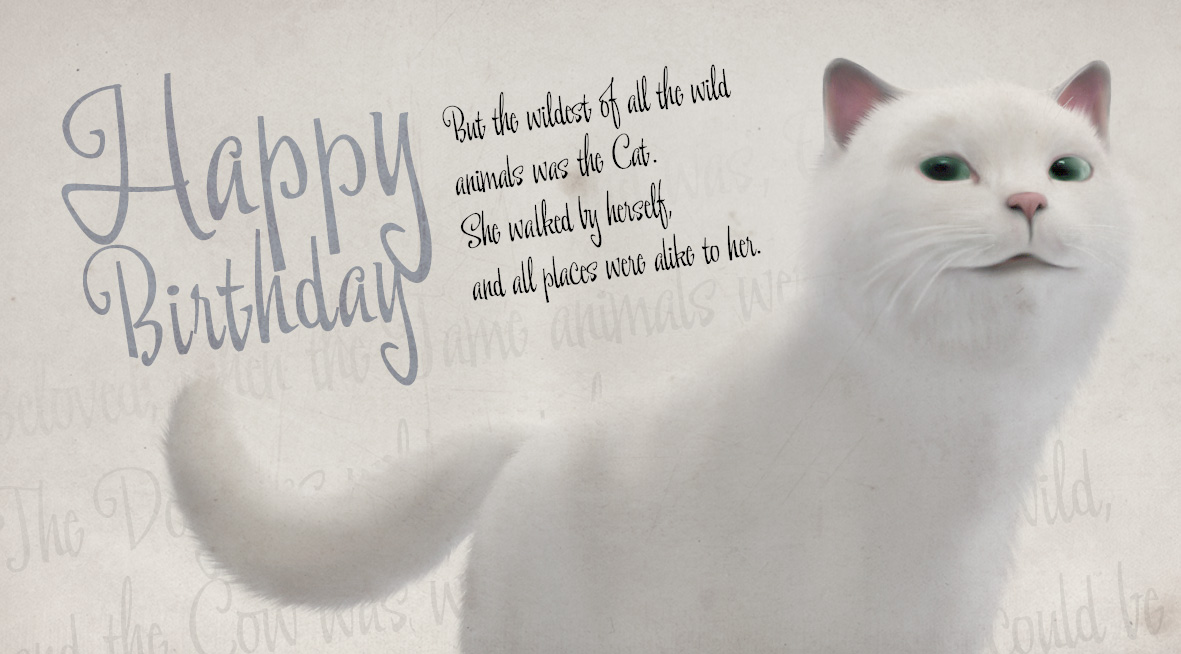 Happy
Birthday
But the wildest of all the wild
animals was the Cat.
She walked by herself,
and all places were alike to her.
was,
Beloved, when the Tame animals were
The Do
wild,
and the Cow was w
could be